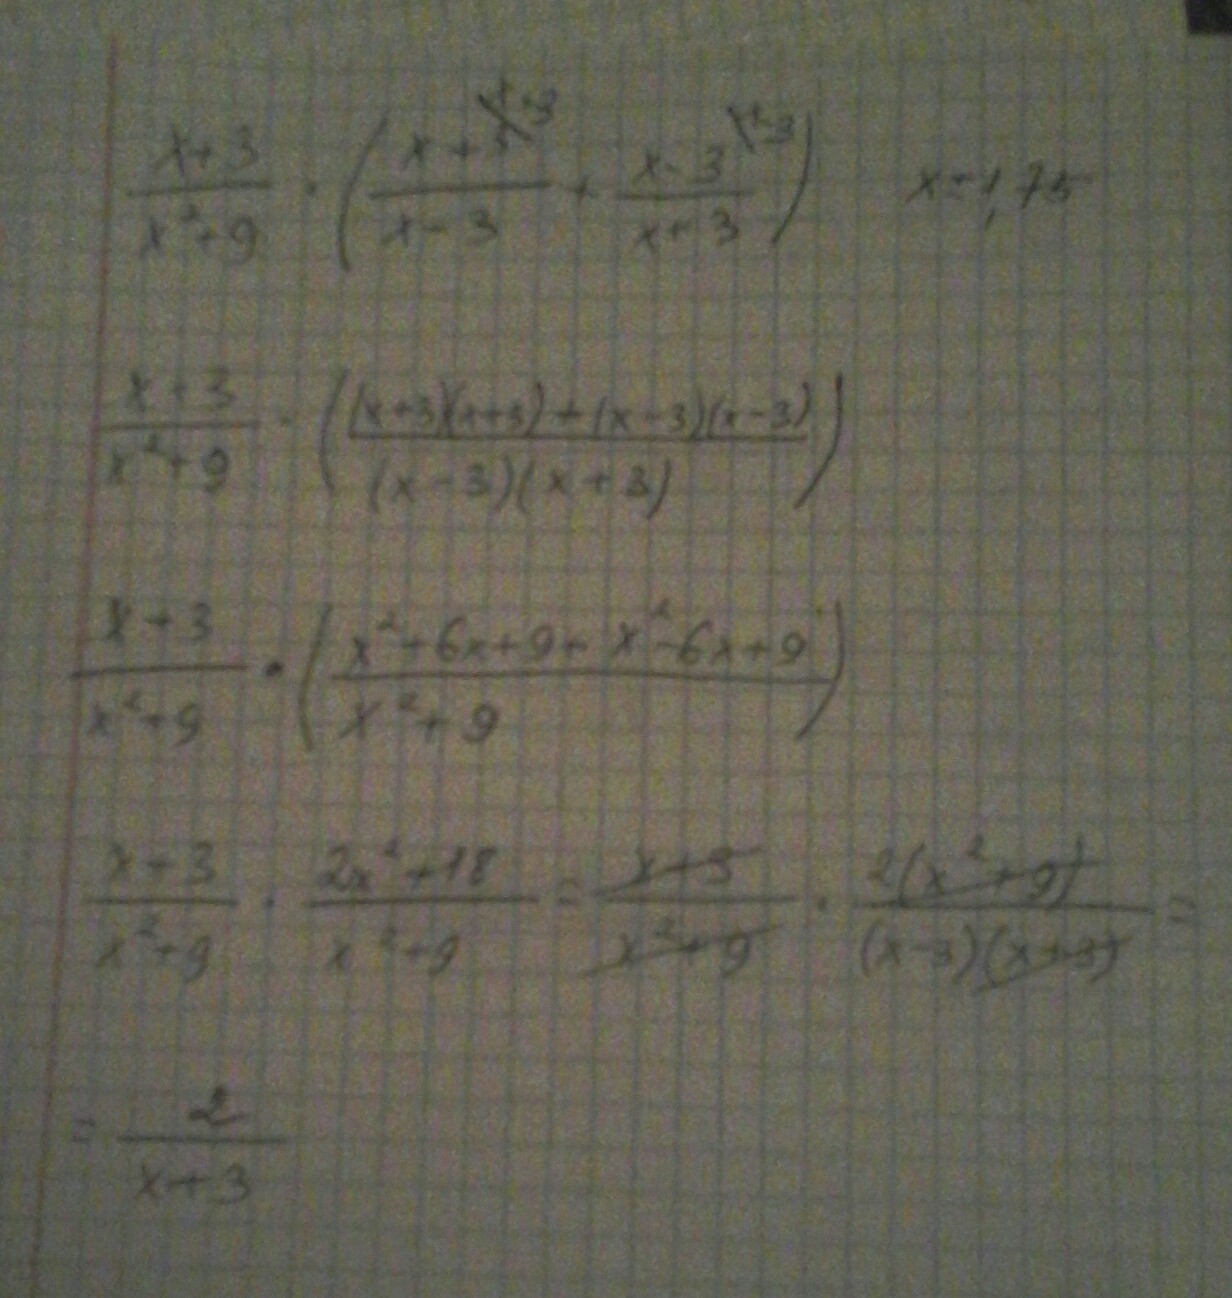 x+3/x²+9 · (x+3/x-3 + x-3/x+3) x=1,75
x+3/x²+9 · ((x+3)(x+3)+(x-3)(x-3)/(x-3)(x+3))
x+3/x²+9 · (x²+6x+9+x²-6x+9/x²+9)
x+3/x²+9 · 2x²+18/x²+9 = x+3/x²+9 · 2(x²+9)/(x-3)(x+3) =
= 2/x+3